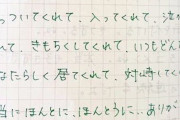 っついてくれて、入ってくれて、
れて、きもちくしてくれて、いつもどん
なたらしく居てくれて、対峙してく
当にほんとに、ほんとうに…ありが